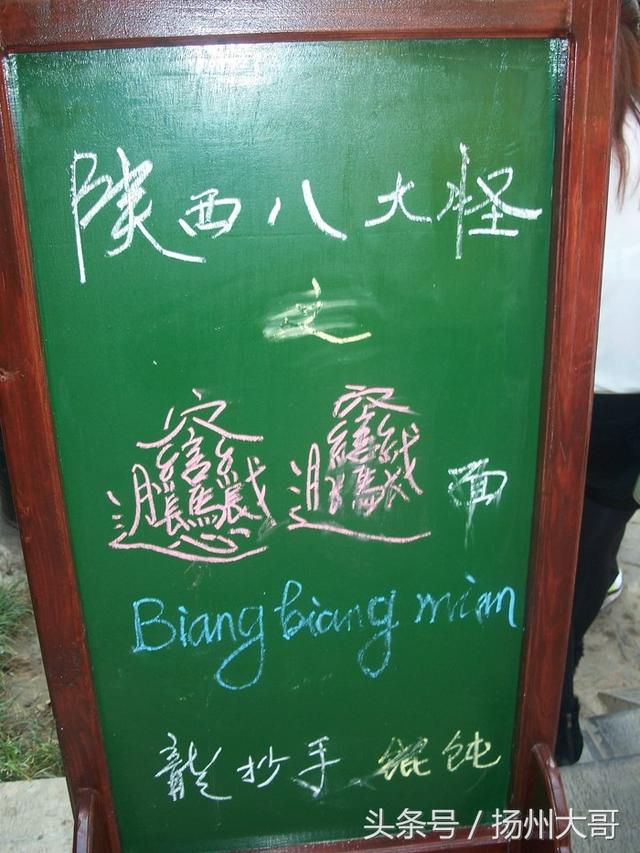 陕西八大怪
之
𰻞𰻞面
Biang biang miàn
龍抄手 馄饨
头条号 / 扬州大哥